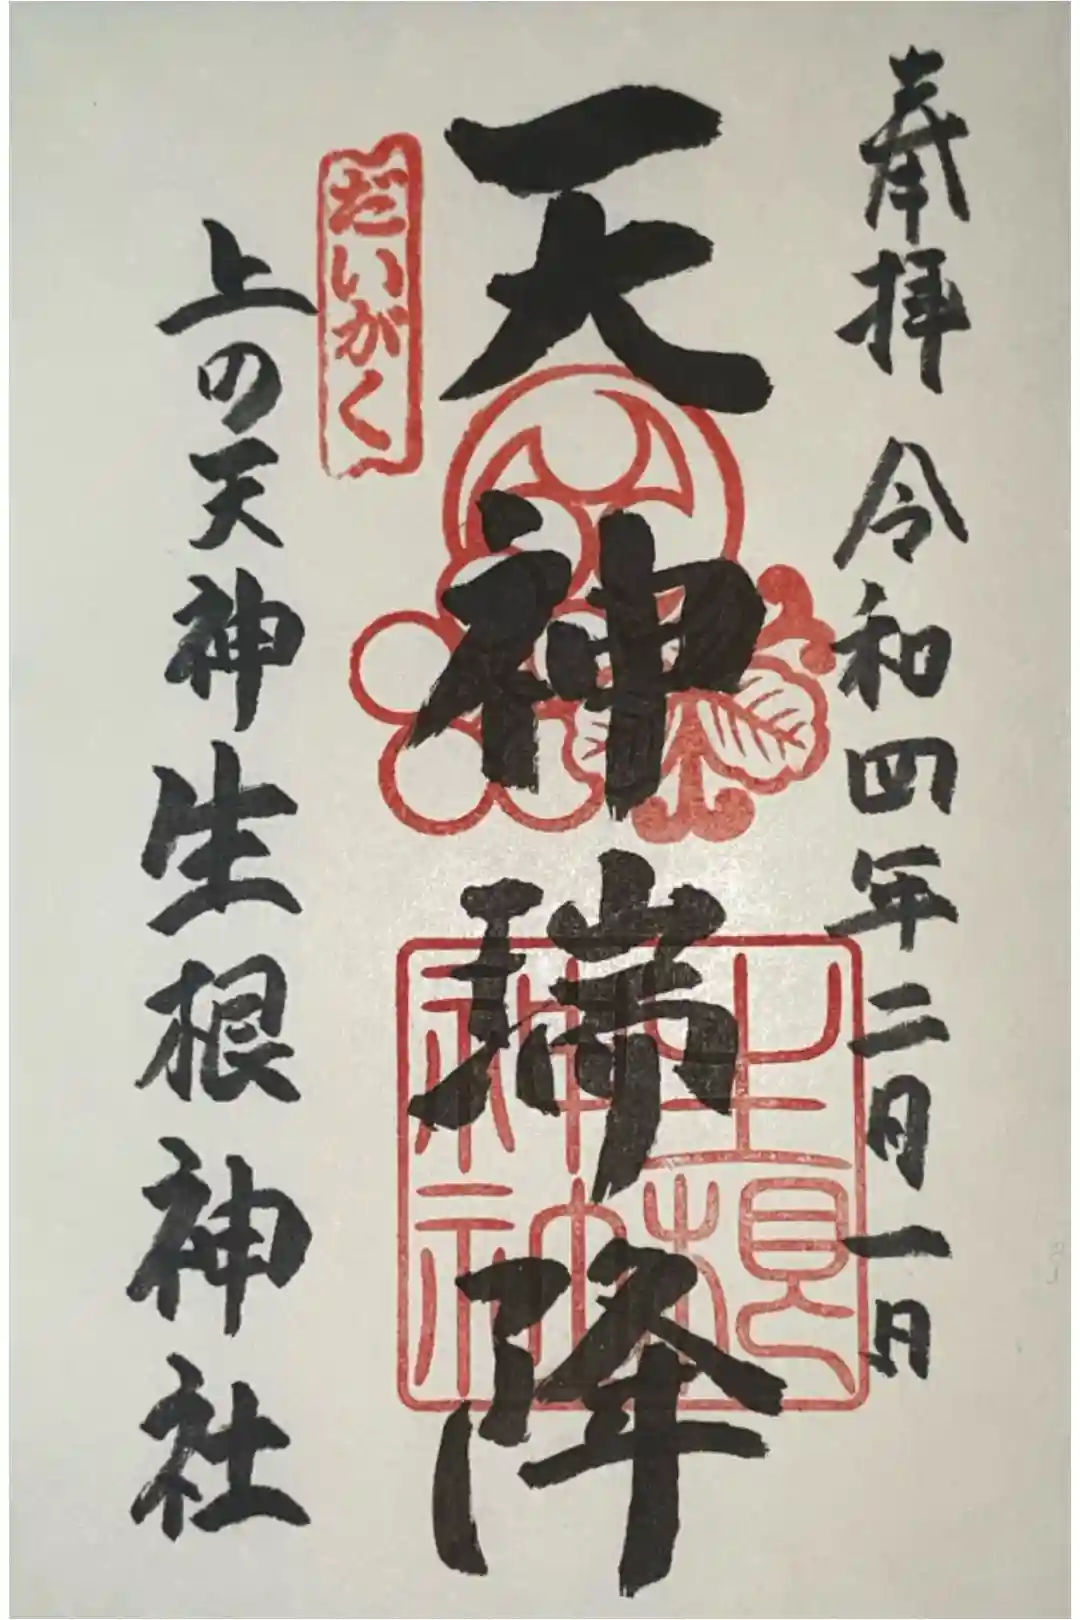 奉拝 令和四年二月一日
天神瑞降
だいがく
生根神社
上の天神生根神社